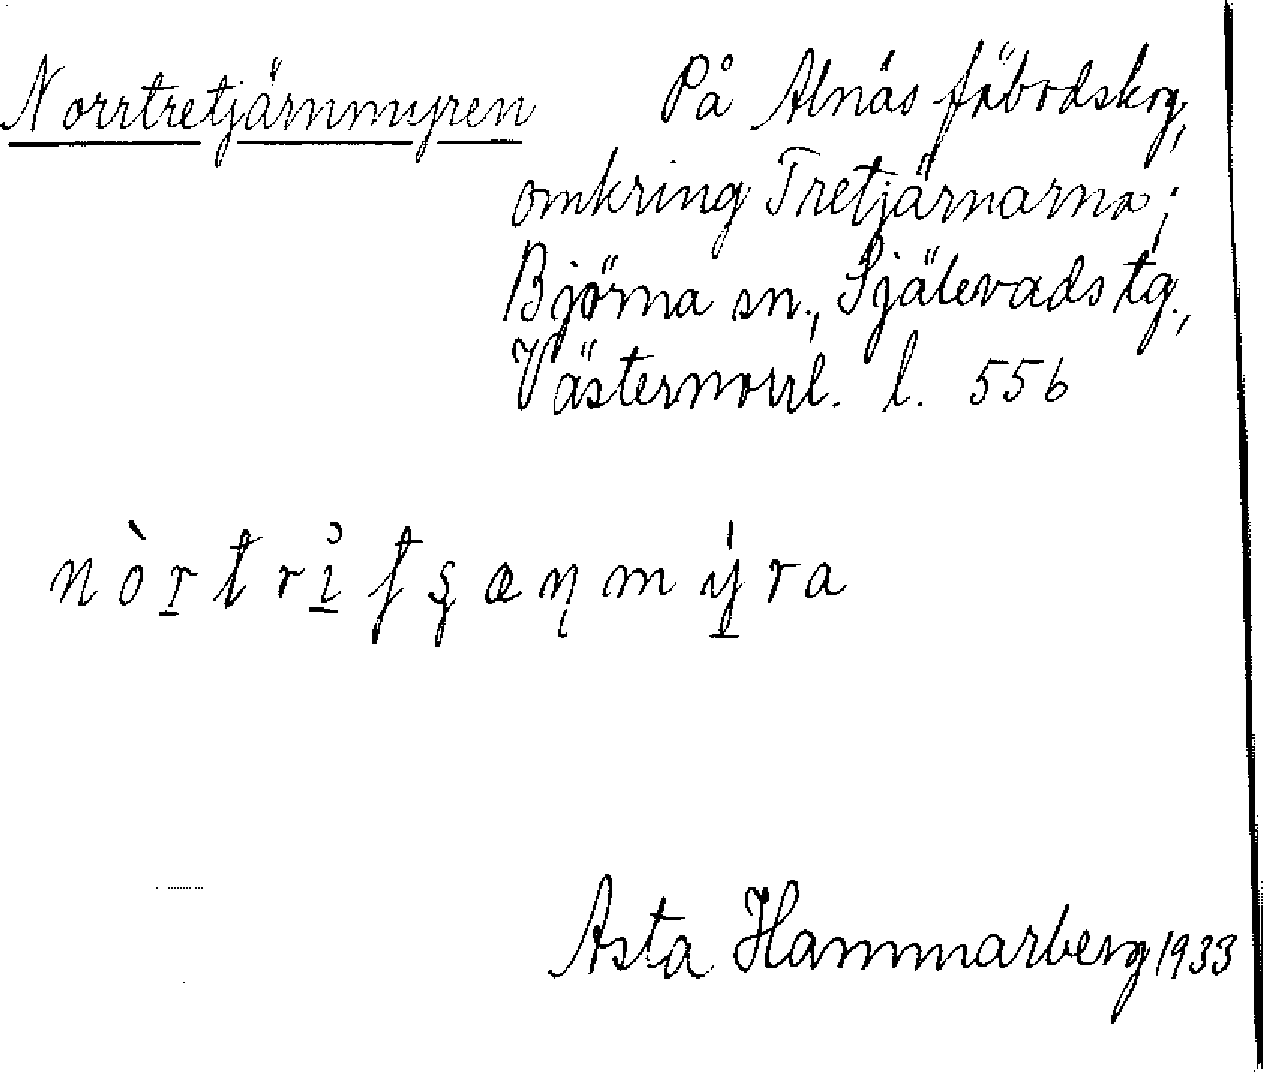 Norrtretjärnmyren På Alnäs fäbodskog,
omkring Tretjärnarna;
Björna sn., Själevads tg.,
Västernorrl. l. 556
Asta Hammarberg 1933